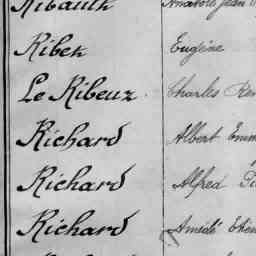 Ribault Anatole Jean
Ribek Eugène
Le Ribeuz Charles
Richard Albert
Richard Alfred
Richard Amédé